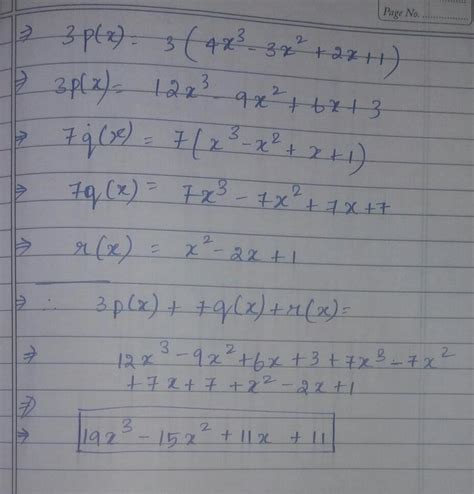 Page No. ..........
⇒ 3p(x) = 3(4x³ - 3x² + 2x + 1)
⇒ 3p(x) = 12x³ - 9x² + 6x + 3
⇒ 7q(x) = 7(x³ - x² + x + 1)
⇒ 7q(x) = 7x³ - 7x² + 7x + 7
⇒ r(x) = x² - 2x + 1
⇒ ∴ 3p(x) + 7q(x) + r(x) =
⇒ 12x³ - 9x² + 6x + 3 + 7x³ - 7x²
+ 7x + 7 + x² - 2x + 1
⇒
⇒ 19x³ - 15x² + 11x + 11